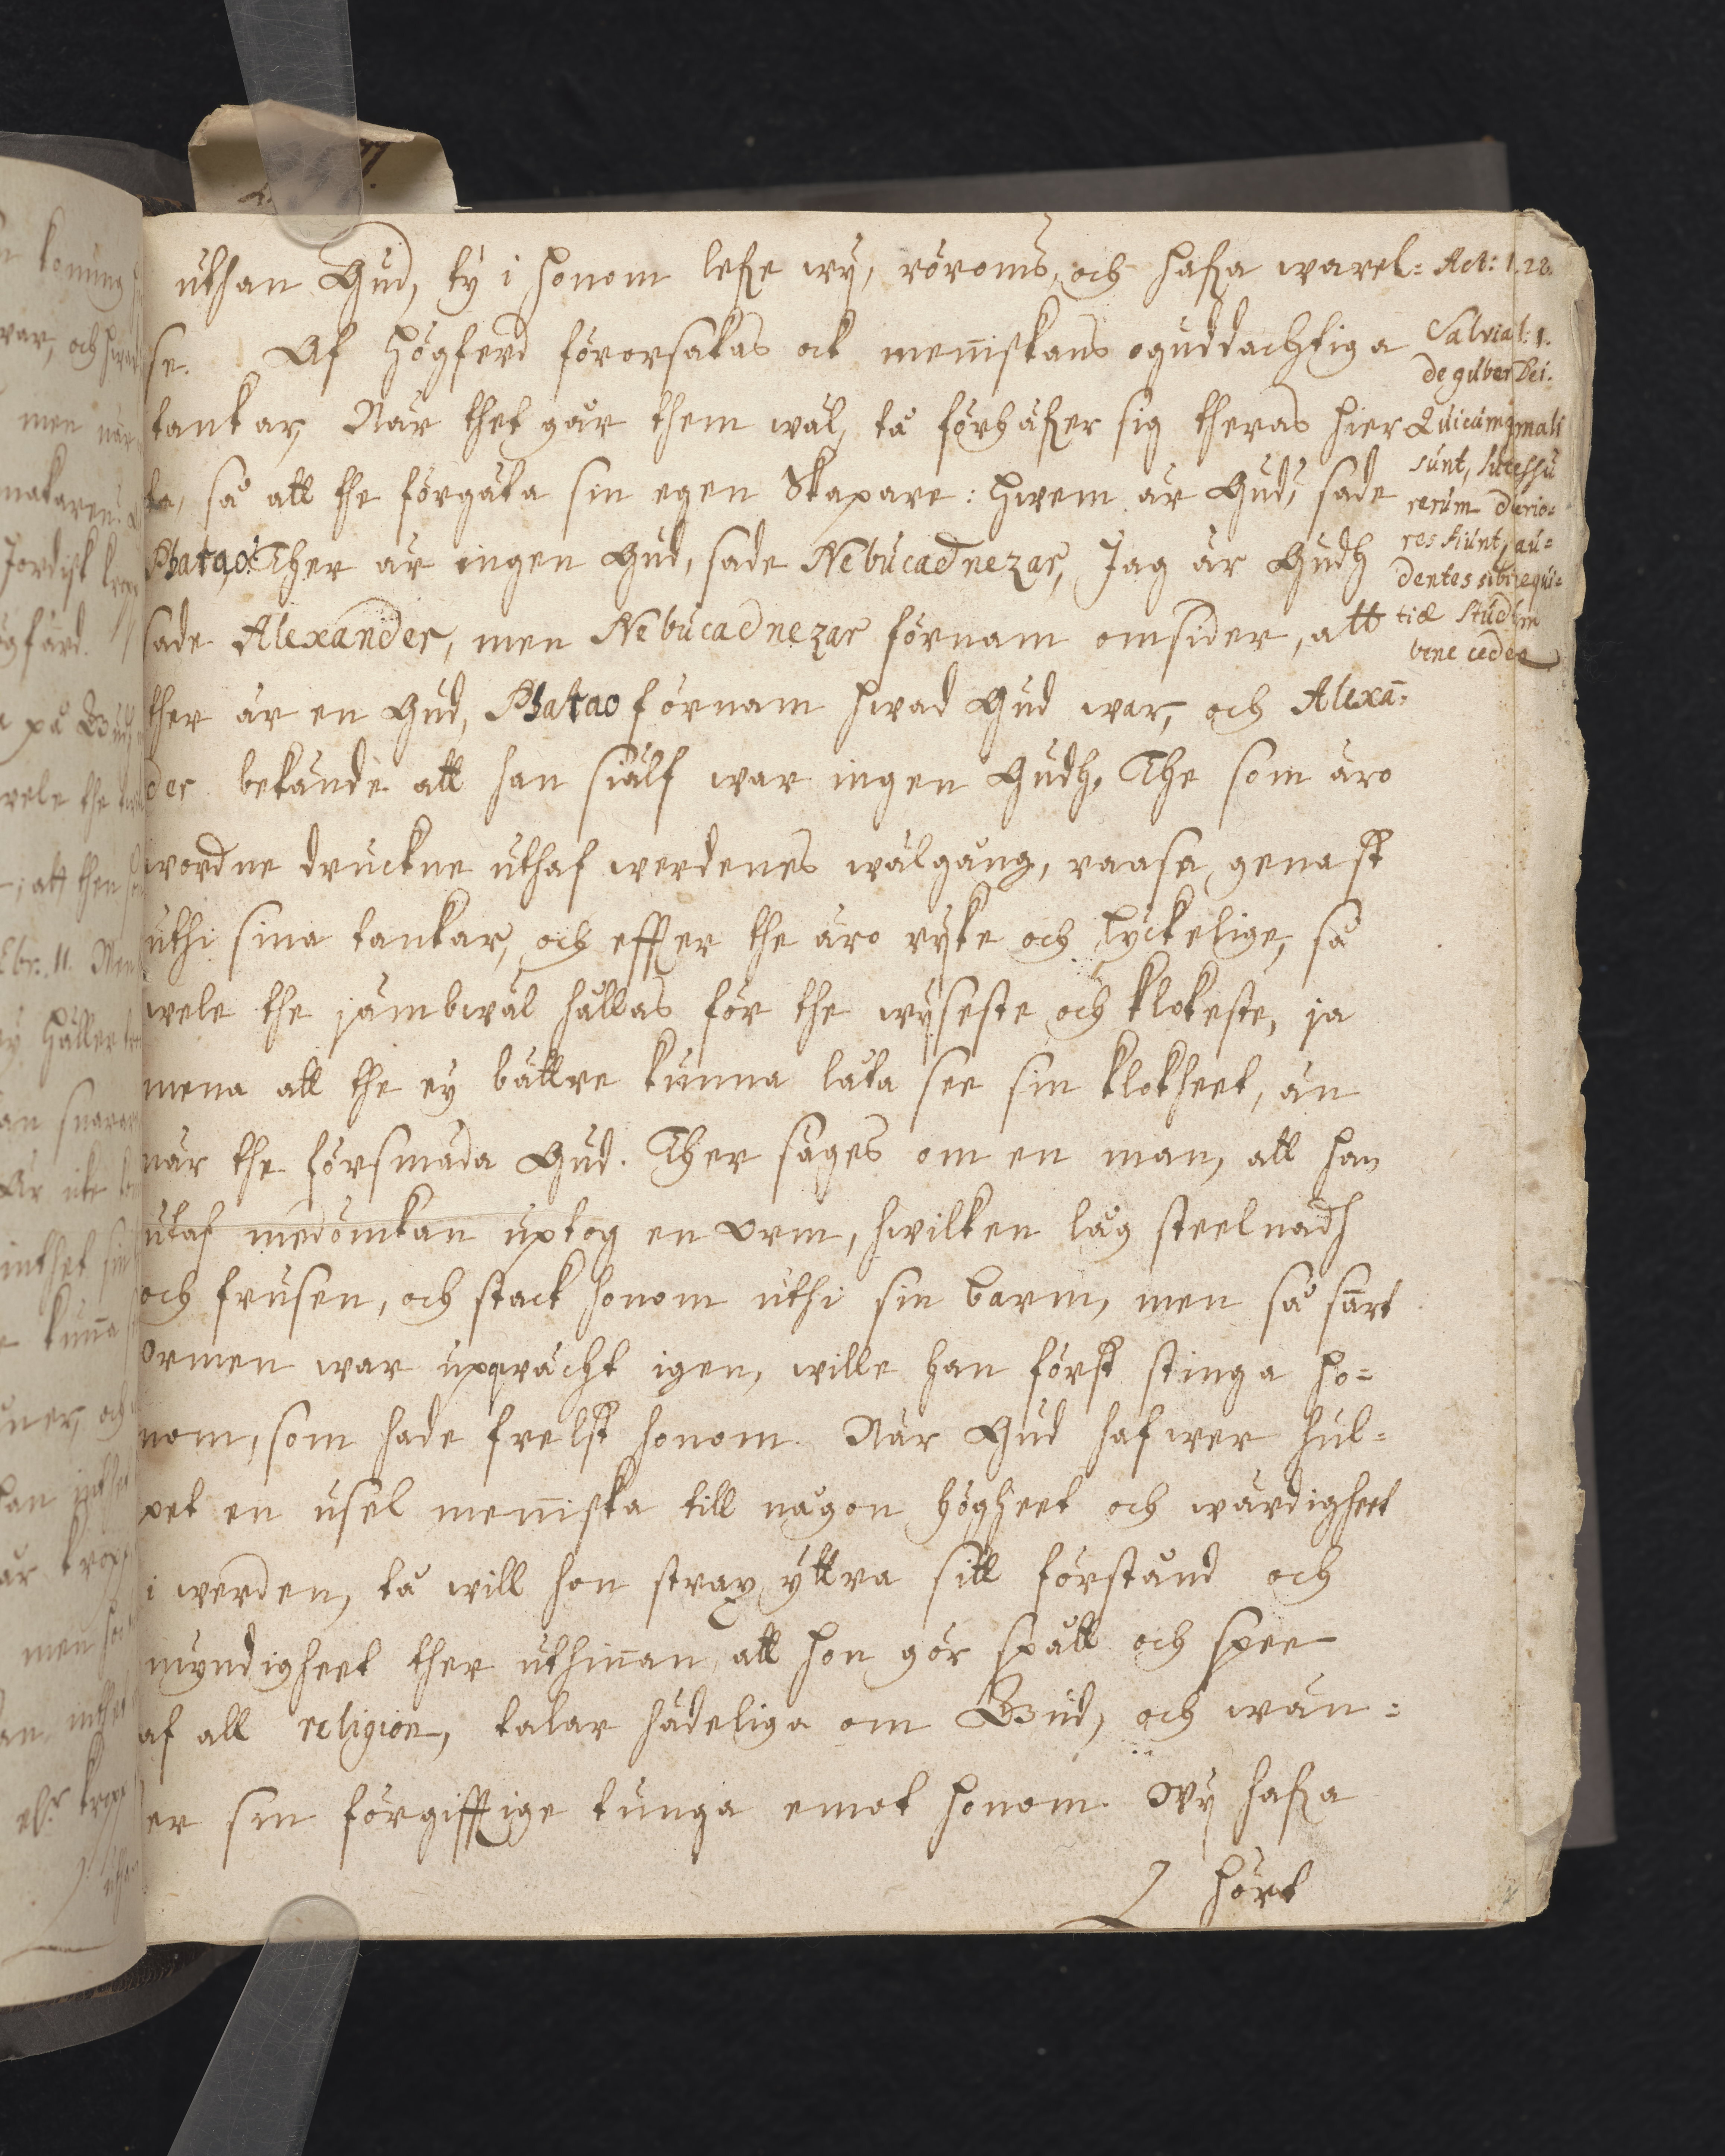 uthan Gud, ty i honom lefve wij, röroms, och hafva warel=
se. Af Högferd förorsakas ock menniskans oguddachtiga
tankar, När thet går them wäl, tå förhäfver sig theras hier
ta, så att the förgäta sin egen Skapare: Hwem är Gud, sade
Pharao: Ther är ingen Gud, sade Nebucadnezar, Jag är Gudh
sade Alexander, men Nebucadnezar förnam omsider, att
ther är en Gud, Pharao förnam hwad Gud war, och Alexan̄=
der bekände att han siälf war ingen Gudh. The som äro
wordne druckne uthaf werdenes wälgång, raasa genast
uthi sina tankar, och effter the äro rijke och lyckelige, så
wele the jämbwäl hållas för the wijseste och klokeste, ja
mena att the ey bättre kunna låta see sin klokheet, än
när the försmäda Gud. Ther säges om en man, att han
utaf medömkan uptog en Orm, hwilken låg steelnadh
och frusen, och stack honom uthi sin barm, men så snart
Ormen war upqwächt igen, wille han först stinga ho=
nom, som hade frelst honom. När Gud hafwer hul=
pet en usel menniska till någon högheet och wärdigheet
i werden, tå will hon strax yttra sitt förstånd och
myndigheet ther uthinnan, att hon gör spått och spee
af all religion, talar hädeliga om Gud, och wän=
er sin förgifftige tunga emot honom. Wij hafva
hördt
Act: 1.28.
Salvia l: 1.
de guber Dei.
Quicumq mali
sunt, successu
rerum durio=
res fiunt, au=
dentes sibi nequi=
tiæ studium
bene cedere